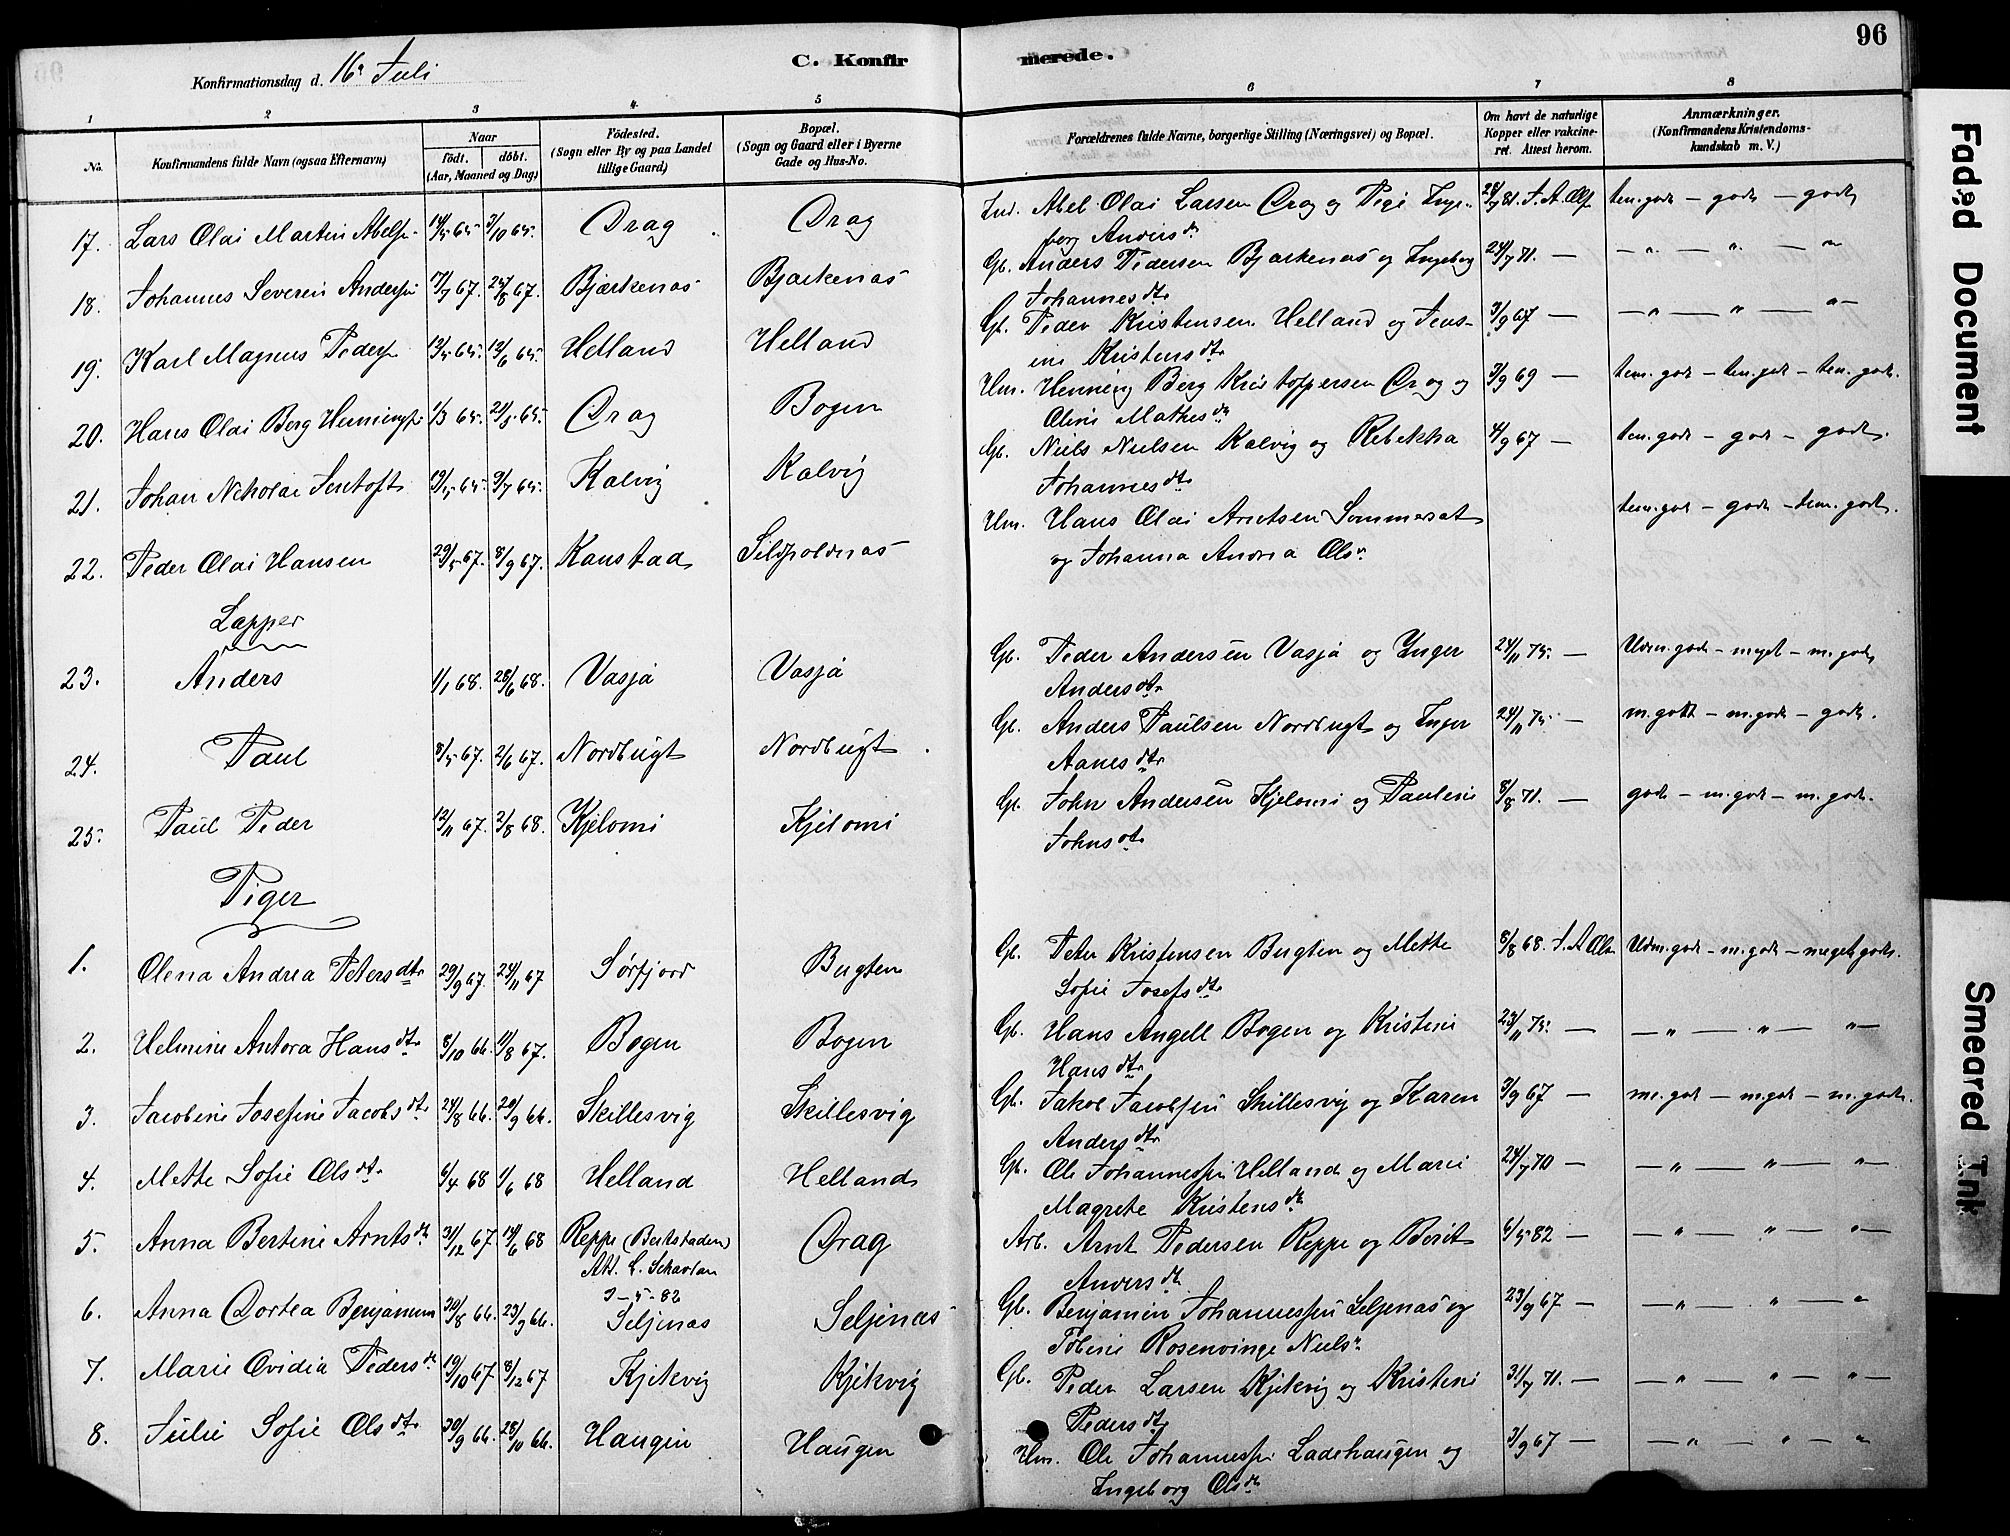 96
Konfirmationsdag d. 16de Juli
C. Konfirmerede.
1 2 3 4 5 6 7 8
No.
Konfirmandens fulde Navn (ogsaa Efternavn)
Naar
födt. döbt.
(Aar, Maaned og Dag)
Födested.
(Sogn eller By og paa Landet
tillige Gaard)
Bopæl.
(Sogn og Gaard eller i Byerne
Gade og Hus-No.
Forældrenes fulde Navne, borgerlige Stilling (Næringsvei) og Bopæl.
Om havt de naturlige
Kopper eller vakcine-
ret. Attest herom.
Anmærkninger.
(Konfirmandens Kristendoms-
kundskab m. V.)
17. Lars Olai Martin Abels. 14/5 65. 3/10 65. Drag Drag Ind. Abel Olai Larsen Drag og Inge-
berg Andersdtr tem. godt – godt – godt
18. Johannes Severin Andersen 17/7 67. 26/8 67. Bjørkenæs Bjørkenæs Gb. Anders Pedersen Bjørkenæs og Ingebog
Johannesdtr 24/7 71. — — " — " — "
19. Karl Magnus Peders. 13/5 65. 12/6 65. Helland Helland Gb. Peder Kristensen Helland og Jens-
ine Kristensdtr 3/9 67 — — " — " — "
20. Hans Olai Berg Hennings. 1/3 65. 21/5 65. Drag Bogen Hm. Henning Berg Kristoffersen Drag og
Oline Mathesdtr 3/9 69 — tem. godt – tem. godt – tem. godt.
21. Johan Nikolai 19/5 65. 9/7 65. Kalvig Kalvig Gb. Niels Nielsen Kalvig og Rebekka
Johannesdtr 4/9 67 — tem. godt – godt – godt.
22. Peder Olai Hansen 29/5 67. 8/9 67. Kanstad Hm. Hans Olai Arntsen Sommerset
og Johanna Andrea Olsdtr tem. godt – godt – tem. godt.
Lapper
23. Anders 1/1 68. 28/6 68. Vasja Vasja Gb. Peder Andersen Vasja og Inger
Andersdtr 24/11 75. — Udm. godt – meget – m. godt
24. Paul 8/5 67. 2/6 67. Nordbugt Nordbugt Gb. Anders Paulsen Nordbugt og Inger
24/11 75. — m. godt – m. godt – godt.
25. Paul Peder 12/11 67. 2/8 68. Kjelomi Kjelomi Gb. John Andersen Kjelomi og Pauline
Johnsdtr 8/8 71. — godt – m. godt – m. godt.
Piger
1. Olena Andrea Petersdtr 29/9 67. 24/11 67 Sørfjord Bugten Gb. Peter Kristensen Bugten og Mette
Sofie Josefsdtr 8/8 68. Udm. godt – m. godt – meget godt.
2. Helmine Antora Hansdtr 8/10 66. 11/8 67. Bogen Bogen Gb. Hans Angell Bogen og Kristine
Hansdtr 23/11 75. — — " — " — "
3. Jacobine Josefine Jacobsdtr 24/8 66. 29/9 66. Skillesvig Skillesvig Gb. Jakob Jacobsen Skillesvig og Karen
Andersdtr 3/9 67 — m. godt – m. godt – m. godt.
4. Mette Sofie Olsdtr 6/4 68 1/6 68 Helland Helland Gb. Ole Johannessen Helland og Marie
Magrete Kristensdtr 24/7 70 — — " — " — "
5. Anna Bertine Arntsdtr 31/12 67. 14/6 68 Reppe Drag Arb. Arnt Pedersen Reppe og Berit
Andersdtr 6/5 82 — — " — " — "
6. Anna Dortea Benjamins 30/8 66. 23/9 66. Seljenæs Seljenæs Gb. Benjamin Johannessen Seljenæs og
Tobine Rosenvinge Nielsdtr 23/9 67 — — " — " — "
7. Marie Ovidia Pedersdtr 19/10 67 8/12 67 Kjikvig Kjikvig Gb. Peder Larsen Kjikvig og Kristine
Pedersdtr 31/7 71. — — " — " — "
8. Julie Sofie Olsdtr 30/9 66. 28/10 66. Haugen Haugen Hm. Ole Johannessen Ladehaugen og
Ingeborg Olsdtr 3/9 67 — — " — " — "
Faded Document
Smeared Ink